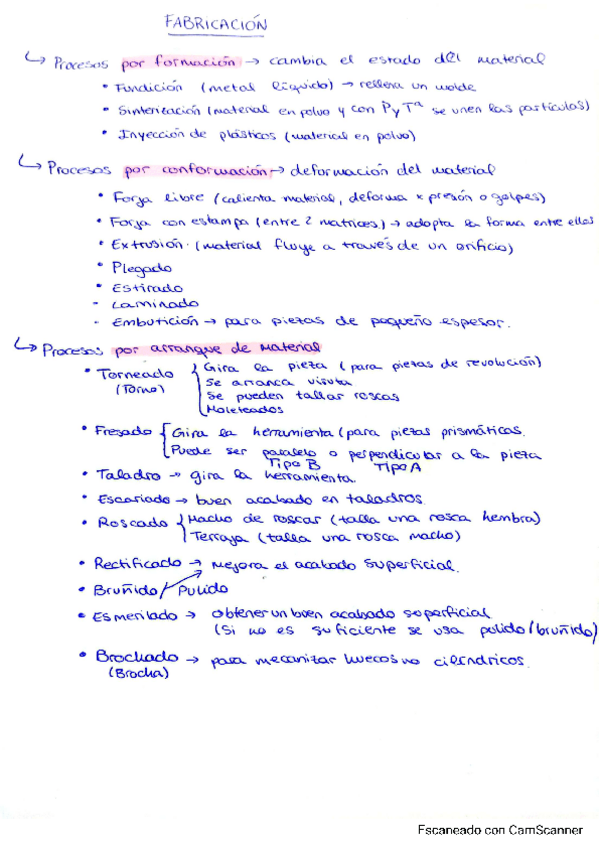 FABRICACIÓN
↳ Procesos por formación → cambia el estado del material
• Fundición (metal líquido) → rellena un molde
• Sinterización (material en polvo y con P y Tª se unen las partículas)
• Inyección de plásticos (material en polvo)
↳ Procesos por conformación → deformación del material
• Forja libre (calienta material, deforma x presión o golpes)
• Forja con estampa (entre 2 matrices) → adopta la forma entre ellas
• Extrusión (material fluye a través de un orificio)
• Plegado
• Estirado
- Laminado
- Embutición → para piezas de pequeño espesor.
↳ Procesos por arranque de material
• Torneado (Torno) { Gira la pieza (para piezas de revolución)
Se arranca viruta
Se pueden tallar roscas
Moleteados
• Fresado { Gira la herramienta (para piezas prismáticas.
Puede ser paralelo o perpendicular a la pieza
Tipo B Tipo A
• Taladro → gira la herramienta
• Escariado → buen acabado en taladros.
• Roscado { Macho de roscar (talla una rosca hembra)
Terraja (talla una rosca macho)
• Rectificado → Mejora el acabado superficial.
• Bruñido / Pulido
• Esmerilado → obtener un buen acabado superficial
(Si no es suficiente se usa pulido/bruñido)
• Brochado → para mecanizar huecos no cilíndricos.
(Brocha)
Escaneado con CamScanner